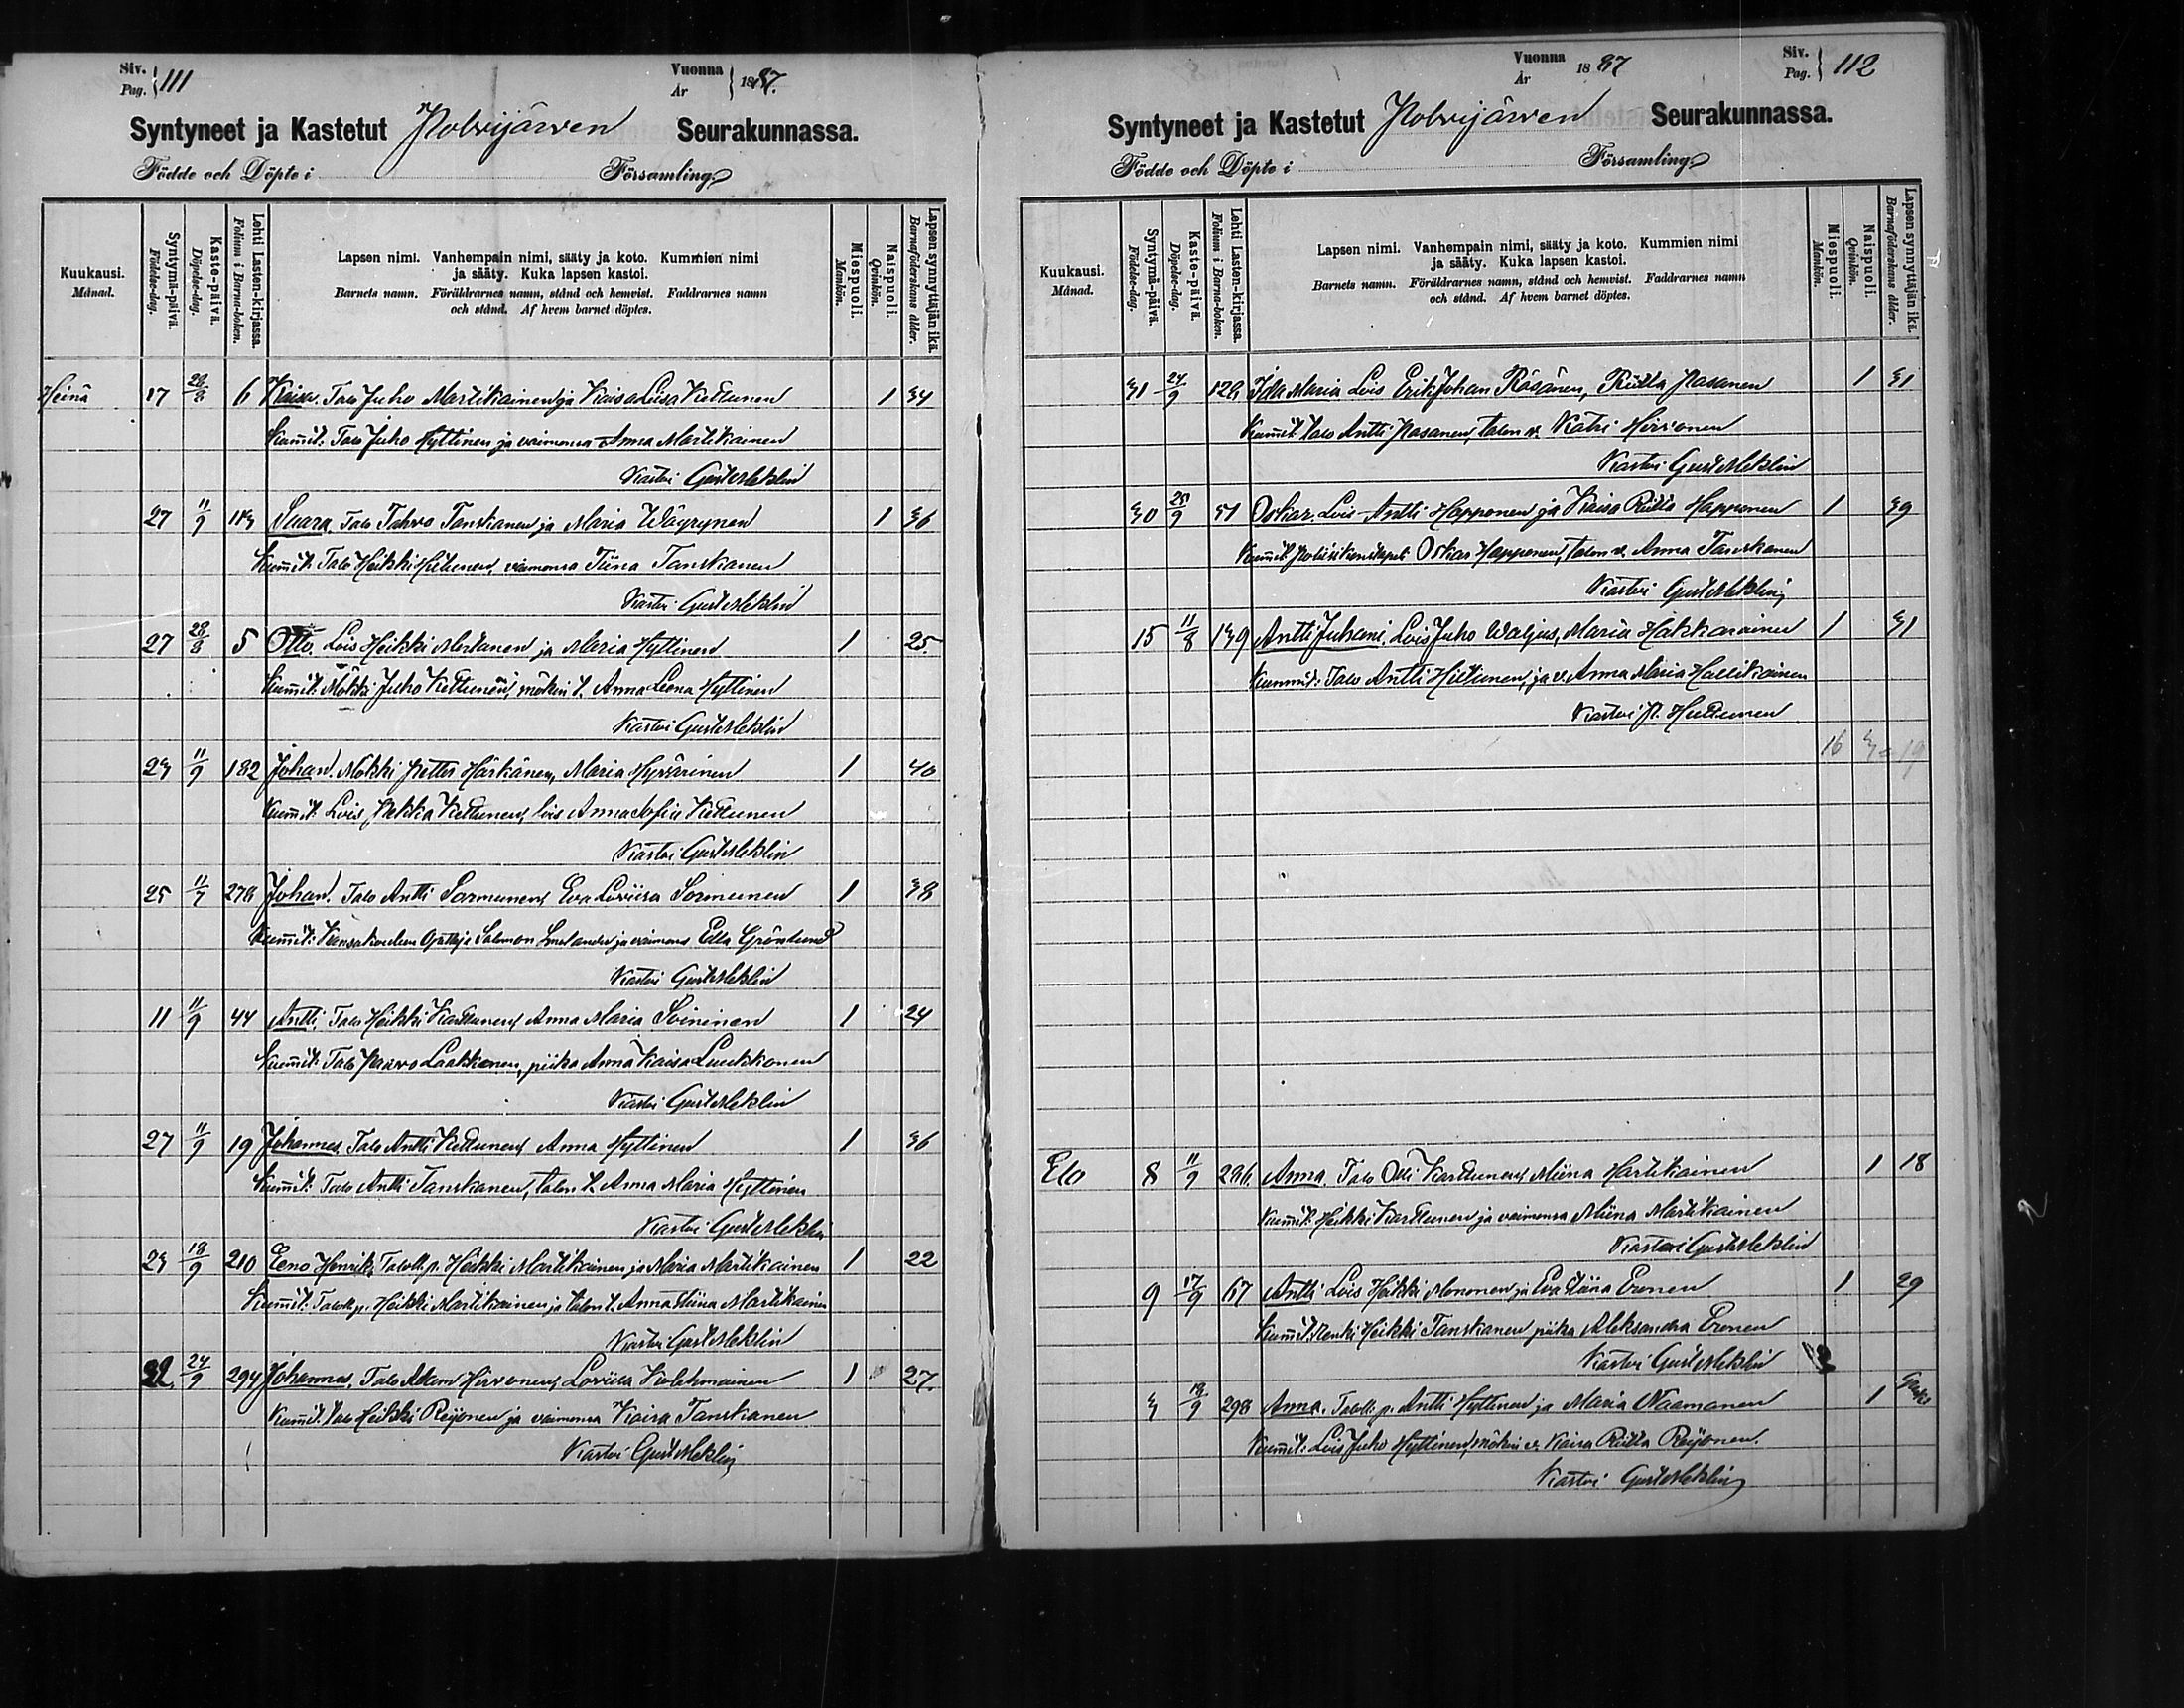 Siv. Pag. 111
Vuonna År 1887.
Syntyneet ja Kastetut Polvijärven Seurakunnassa.
Födde och Döpte i Församling.
Kuukausi. Månad.
Syntymä-päivä. Födelse-dag.
Kaste-päivä. Döpelse-dag.
Lehti Lasten-kirjassa. Folium i Barna-boken.
Lapsen nimi. Vanhempain nimi, sääty ja koto. Kummien nimi
ja sääty. Kuka lapsen kastoi.
Barnets namn. Föräldrarnes namn, stånd och hemvist. Faddrarnes namn
och stånd. Af hvem barnet döptes.
Miespuoli. Mankön.
Naispuoli. Qvinkön.
Lapsen synnyttäjän ikä. Barnaföderskans ålder.
Heinä 17 28/8 6 Kaisa. Talo Juho Martikainen ja Kaisa Liisa Kettunen 1 34
Kummit: Talo Juho Hyttinen ja vaimonsa Anna Martikainen
Kastoi Gust Meklin
27 11/9 Talo Tahvo Tanskanen ja Maria Wäyrynen 1 36
Kummit: Talo Heikki Hiltunen, vaimonsa Tiina Tanskanen
Kastoi Gust Meklin
27 28/8 5 Otto. Lois Heikki Mertanen ja Maria Hyttinen 1 25
Kummit: Mökki Juho Kettunen, mökin v. Anna Leena Hyttinen
Kastoi Gust Meklin
23 11/9 182 Johan. Mökki Petter Härkänen, Maria Hyvärinen 1 40
Kummit: Lois Pekka Kettunen, lois Anna Sofia Kettunen
Kastoi Gust Meklin
25 278 Johan. Talo Antti Sormunen, Eva Loviisa Sormunen 1 38
Kummit: Kansakoulun Opettaja Salomon ja vaimonsa Edla Grönlund
Kastoi Gust Meklin
11 11/9 44 Antti. Talo Heikki Karttunen, Anna Maria Soininen 1 24
Kummit: Talo Paavo Laakkonen, piika Anna Kaisa Luukkonen
Kastoi Gust Meklin
27 11/9 19 Johannes. Talo Antti Kettunen, Anna Hyttinen 1 36
Kummit: Talo Antti Tanskanen, talon v. Anna Maria Hyttinen
Kastoi Gust Meklin
23 18/9 210 Eeno Henrik. Talok. p. Heikki Martikainen ja Maria Martikainen 1 22
Kummit: Talok. p. Heikki Martikainen ja talon t. Anna Stiina Martikainen
Kastoi Gust Meklin
24/9 294 Johannes. Talo Adam Hirvonen, Loviisa Kolehmainen 1 27.
Kummit: Talo Heikki Reijonen ja vaimonsa Kaisa Tanskanen
Kastoi Gust Meklin
Siv. Pag. 112
Vuonna År 1887
Syntyneet ja Kastetut Polvijärven Seurakunnassa.
Födde och Döpte i Församling.
Kuukausi. Månad.
Syntymä-päivä. Födelse-dag.
Kaste-päivä. Döpelse-dag.
Lehti Lasten-kirjassa. Folium i Barna-boken.
Lapsen nimi. Vanhempain nimi, sääty ja koto. Kummien nimi
ja sääty. Kuka lapsen kastoi.
Barnets namn. Föräldrarnes namn, stånd och hemvist. Faddrarnes namn
och stånd. Af hvem barnet döptes.
Miespuoli. Mankön.
Naispuoli. Qvinkön.
Lapsen synnyttäjän ikä. Barnaföderskans ålder.
31 24/9 Ida Maria. Lois Erik Johan Räsänen, Riitta Pasanen 1 31
Kummit: Talo Antti Pasanen, talon v. Katri Hirvonen
Kastoi Gust Meklin
30 25/9 51 Oskar. Lois Antti Happonen ja Kaisa Riitta Happonen 1 39
Kummit: Oskar Happonen, talon v. Anna Tanskanen
Kastoi Gust Meklin
15 11/8 139 Antti Juhani. Lois Juho Waljus, Maria Hakkarainen 1 31
Kummit: Talo Antti Hiltunen, ja v. Anna Maria Hallikainen
Kastoi P. Huttunen
16 3 = 19
Elo 8 11/9 286. Anna. Talo Olli Karttunen, Miina Martikainen 1 18
Kummit: Heikki Karttunen ja vaimonsa Miina Martikainen
Kastoi Gust Meklin
9 17/9 67 Antti. Lois Heikki Mononen ja Eva Stiina Eronen 1 29
Kummit: Renki Heikki Tanskanen piika Aleksandra Eronen
Kastoi Gust Meklin
3 18/9 298 Anna. Talok. p. Antti Hyttinen ja Maria Waamanen 1
Kummit: Lois Juho Hyttinen, mökin v. Kaisa Riitta Reijonen.
Kastoi Gust Meklin